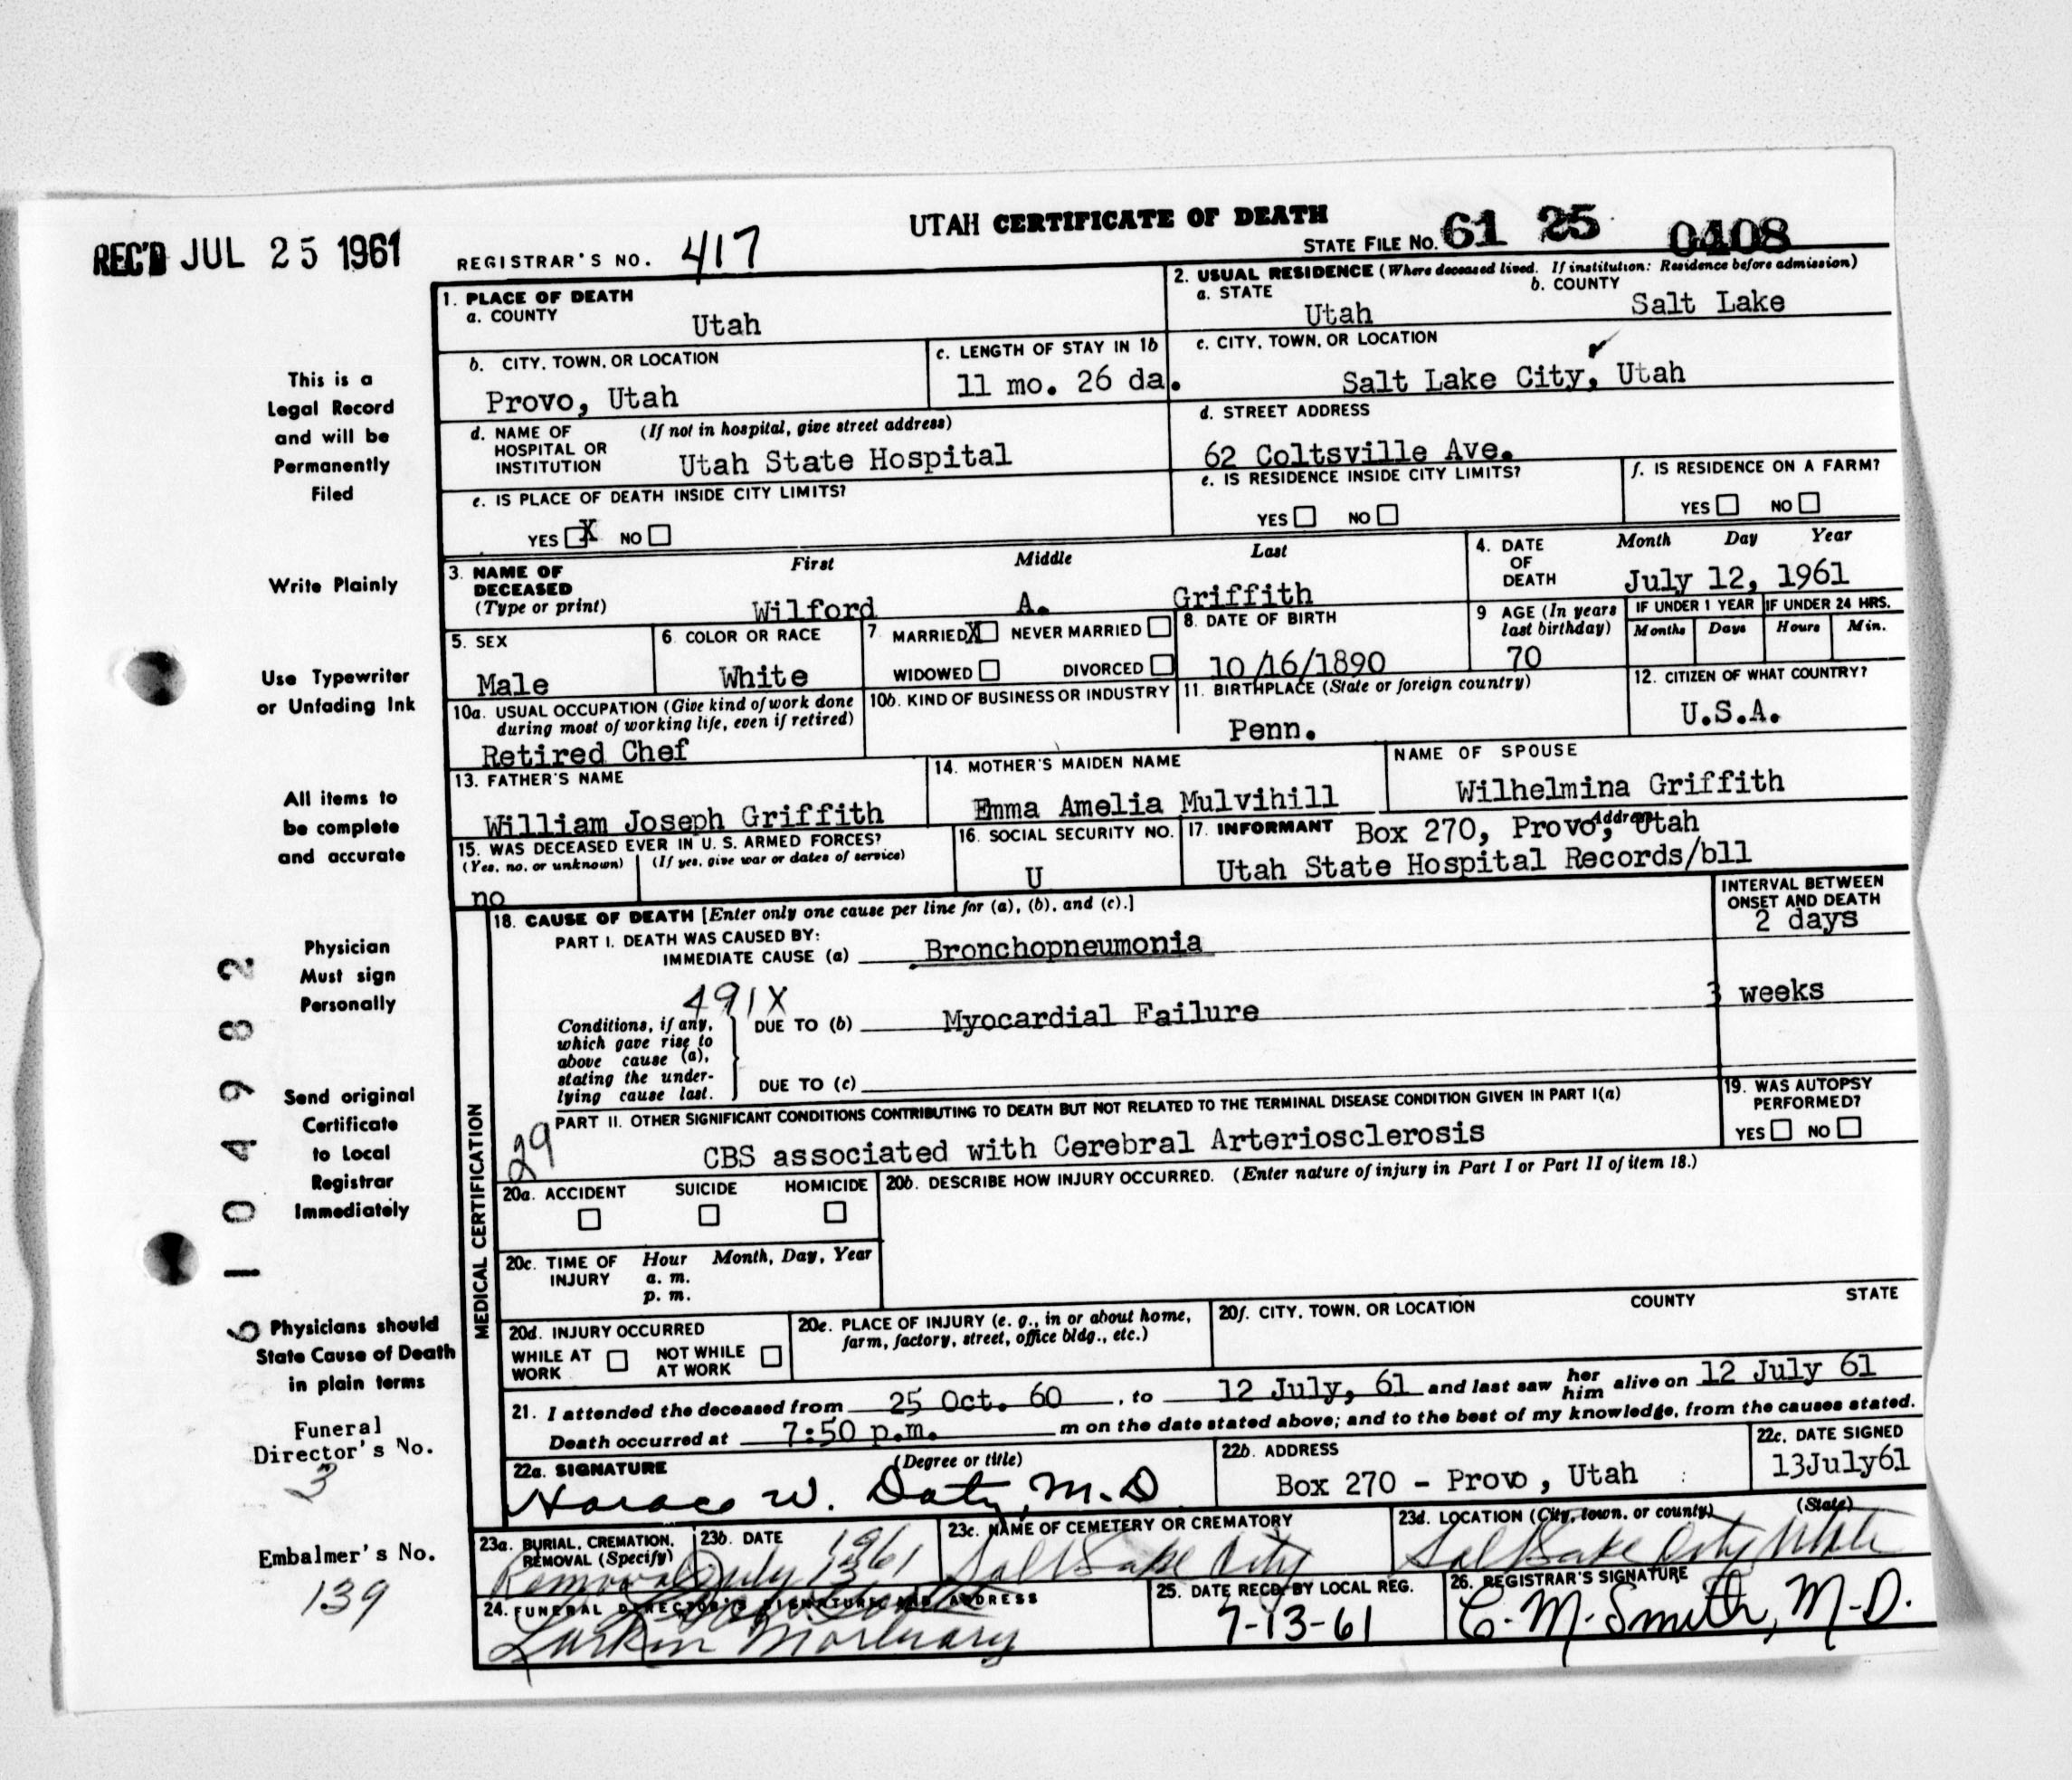 UTAH CERTIFICATE OF DEATH
REC'D JUL 25 1961
REGISTRAR'S NO. 417
STATE FILE NO. 61 25 0408
1. PLACE OF DEATH
a. COUNTY
Utah
2. USUAL RESIDENCE (Where deceased lived. If institution: Residence before admission)
a. STATE
Utah
b. COUNTY
Salt Lake
b. CITY, TOWN, OR LOCATION
Provo, Utah
c. LENGTH OF STAY IN 1b
11 mo. 26 da.
c. CITY, TOWN, OR LOCATION
Salt Lake City, Utah
d. NAME OF HOSPITAL OR INSTITUTION
(If not in hospital, give street address)
Utah State Hospital
d. STREET ADDRESS
62 Coltsville Ave.
e. IS PLACE OF DEATH INSIDE CITY LIMITS?
YES X NO
e. IS RESIDENCE INSIDE CITY LIMITS?
YES NO
f. IS RESIDENCE ON A FARM?
YES NO
3. NAME OF DECEASED
(Type or print)
First Middle Last
Wilford A. Griffith
4. DATE OF DEATH
Month Day Year
July 12, 1961
5. SEX
Male
6. COLOR OR RACE
White
7. MARRIED X NEVER MARRIED
WIDOWED DIVORCED
8. DATE OF BIRTH
10/16/1890
9 AGE (In years last birthday)
70
IF UNDER 1 YEAR
Months Days
IF UNDER 24 HRS.
Hours Min.
10a. USUAL OCCUPATION (Give kind of work done during most of working life, even if retired)
Retired Chef
10b. KIND OF BUSINESS OR INDUSTRY
11. BIRTHPLACE (State or foreign country)
Penn.
12. CITIZEN OF WHAT COUNTRY?
U.S.A.
13. FATHER'S NAME
William Joseph Griffith
14. MOTHER'S MAIDEN NAME
Emma Amelia Mulvihill
NAME OF SPOUSE
Wilhelmina Griffith
15. WAS DECEASED EVER IN U. S. ARMED FORCES?
(Yes, no, or unknown) (If yes, give war or dates of service)
no
16. SOCIAL SECURITY NO.
U
17. INFORMANT Address
Box 270, Provo, Utah
Utah State Hospital Records/bll
MEDICAL CERTIFICATION
18. CAUSE OF DEATH [Enter only one cause per line for (a), (b), and (c).]
INTERVAL BETWEEN ONSET AND DEATH
PART I. DEATH WAS CAUSED BY:
IMMEDIATE CAUSE (a) Bronchopneumonia
2 days
491X
Conditions, if any, which gave rise to above cause (a), stating the underlying cause last.
DUE TO (b) Myocardial Failure
3 weeks
DUE TO (c)
29
PART II. OTHER SIGNIFICANT CONDITIONS CONTRIBUTING TO DEATH BUT NOT RELATED TO THE TERMINAL DISEASE CONDITION GIVEN IN PART I(a)
CBS associated with Cerebral Arteriosclerosis
19. WAS AUTOPSY PERFORMED?
YES NO
20a. ACCIDENT SUICIDE HOMICIDE
20b. DESCRIBE HOW INJURY OCCURRED. (Enter nature of injury in Part I or Part II of item 18.)
20c. TIME OF INJURY
Hour Month, Day, Year
a. m.
p. m.
20d. INJURY OCCURRED
WHILE AT WORK NOT WHILE AT WORK
20e. PLACE OF INJURY (e. g., in or about home, farm, factory, street, office bldg., etc.)
20f. CITY, TOWN, OR LOCATION COUNTY STATE
21. I attended the deceased from 25 Oct. 60, to 12 July, 61 and last saw her him alive on 12 July 61
Death occurred at 7:50 p.m. m on the date stated above; and to the best of my knowledge, from the causes stated.
22a. SIGNATURE (Degree or title)
Horace W. Doty, M.D
22b. ADDRESS
Box 270 - Provo, Utah
22c. DATE SIGNED
13July61
23a. BURIAL, CREMATION, REMOVAL (Specify)
Removal
23b. DATE
July 13 1961
23c. NAME OF CEMETERY OR CREMATORY
Salt Lake City
23d. LOCATION (City, town, or county) (State)
Salt Lake City Utah
24. FUNERAL DIRECTOR'S SIGNATURE AND ADDRESS
Larkin Mortuary
25. DATE RECD. BY LOCAL REG.
7-13-61
26. REGISTRAR'S SIGNATURE
C. M. Smith, M.D.
This is a
Legal Record
and will be
Permanently
Filed
Write Plainly
Use Typewriter
or Unfading Ink
All items to
be complete
and accurate
Physician
Must sign
Personally
Send original
Certificate
to Local
Registrar
Immediately
Physicians should
State Cause of Death
in plain terms
Funeral
Director's No.
3
Embalmer's No.
139
6 1 0 4 9 8 2